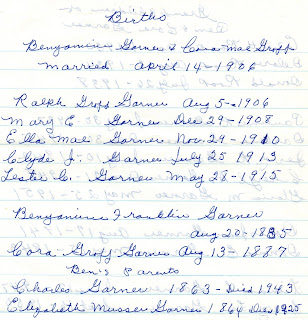 Births
Benjamine Garner & Cora Mae Groff
Married April 14 - 1906
Ralph Groff Garner Aug 5 - 1906
Mary E Garner Dec 29 - 1908
Ella Mae Garner Nov. 29 - 1910
Clyde J. Garner July 25 1913
Lester C. Garner May 28 - 1915
Benjamine Franklin Garner
Aug 20 - 1885
Cora Groff Garner Aug 13 - 1887
Ben's Parents
Charles Garner 1863 - Died 1943
Elizabeth Musser Garner 1864 Died 1925